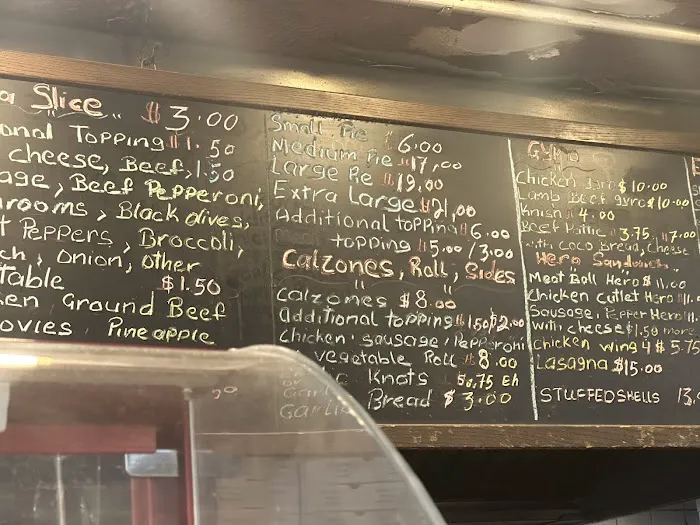 Slice $3.00
onal Topping $1.50
cheese, Beef, 1.50
age, Beef Pepperoni,
rooms, Black olives,
t Peppers, Broccoli,
ch, onion, other
table $1.50
ken Ground Beef
ovies, Pineapple
Small Pie $6.00
Medium Pie $17,00
Large Pie $19.00
Extra Large $21,00
Additional topping $6.00
topping $5.00 / 3.00
Calzones, Roll, Sides
Calzones $8.00
Additional topping $1.50/$2.00
Chicken, sausage, Pepperoni
vegetable Roll $8.00
Knots $0.75 Eh
Bread $3.00
Gyro
Chicken Gyro $10.00
Lamb Beef Gyro $10.00
Knish $4.00
Beef Pattie $3.75, $7.00
with Coco Bread, Cheese
Hero Sandwich
Meat Ball Hero $11.00
Chicken Cutlet Hero $11.
Sausage, Pepper Hero $11.
with cheese $1.50 more
Chicken wing 4 $5.75
Lasagna $15.00
STUFFED SHELLS 13.